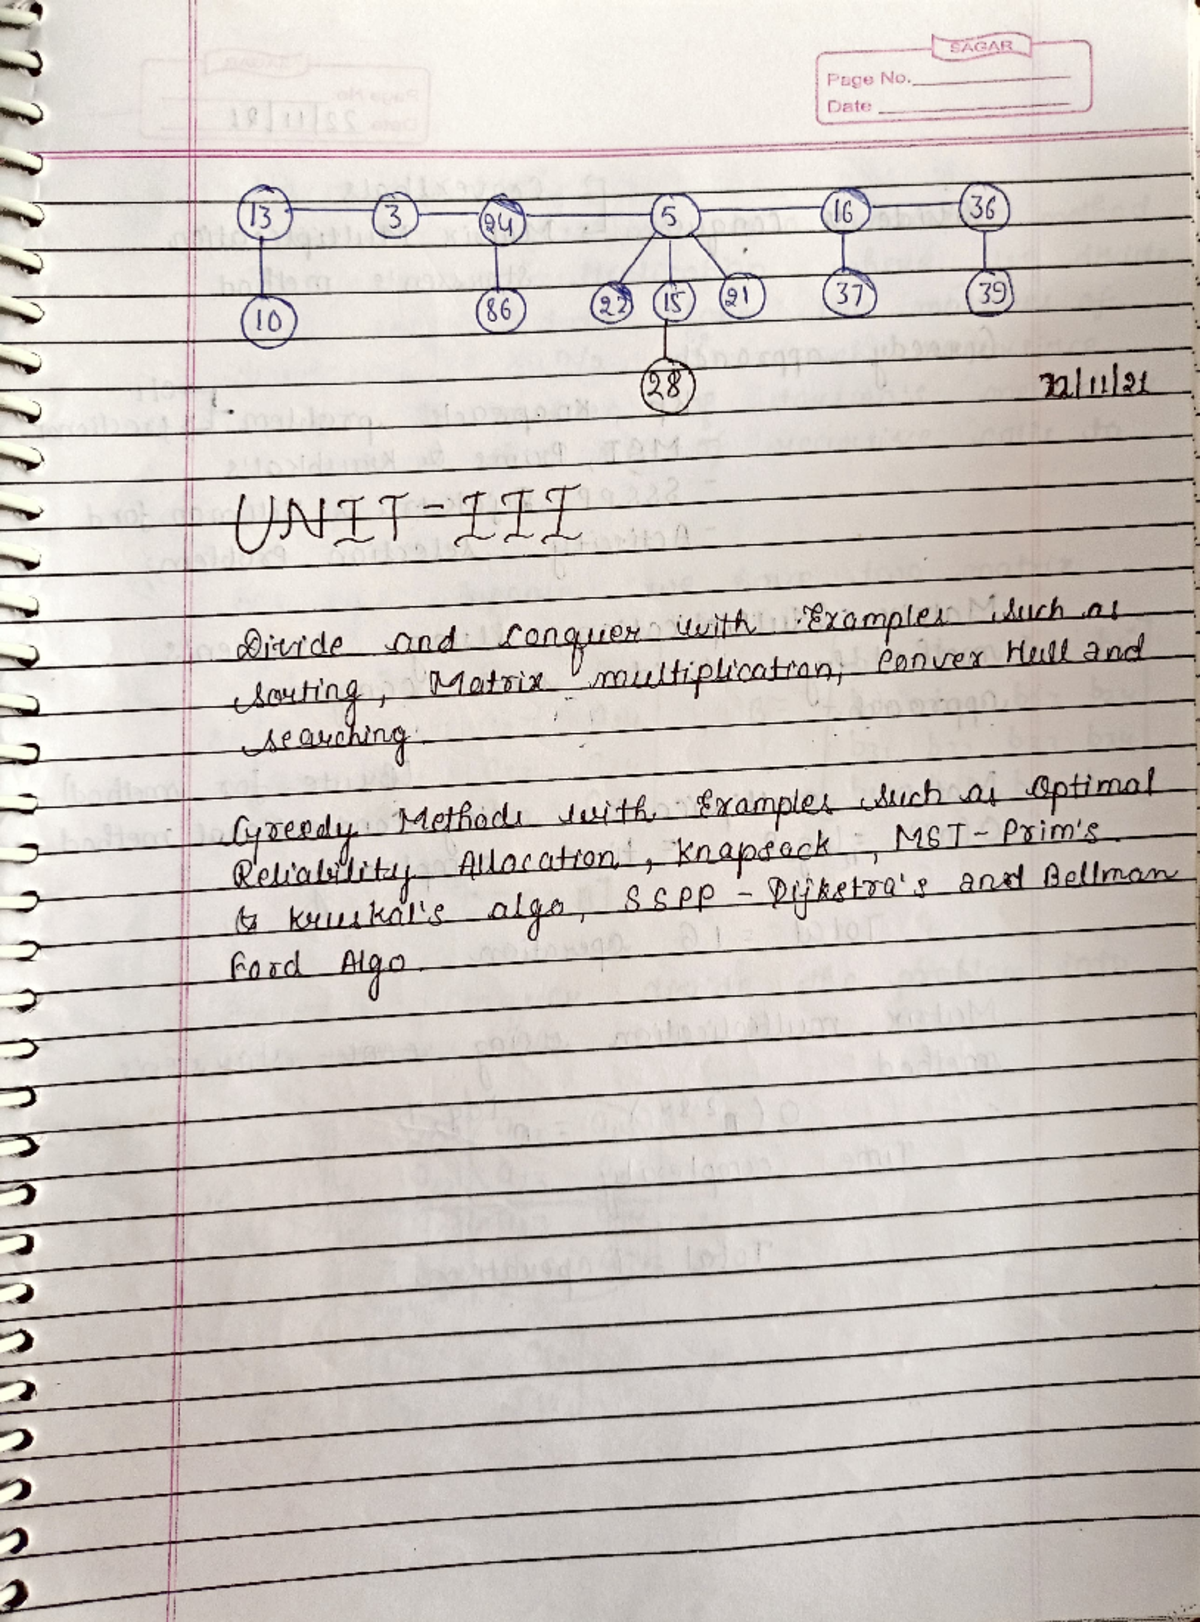 SAGAR
Page No.
Date
13 3 24 5 16 36
10 86 22 15 21 37 39
28
22/11/21
UNIT-III
Divide and Conquer with Examples such as
sorting, Matrix multiplication, Conver Hull and
searching
Greedy Methods with Examples such as Optimal
Reliability Allocation, Knapsack, MST-Prim's
& Kruskal's algo, SSPP - Dijkstra's and Bellman
Ford Algo.